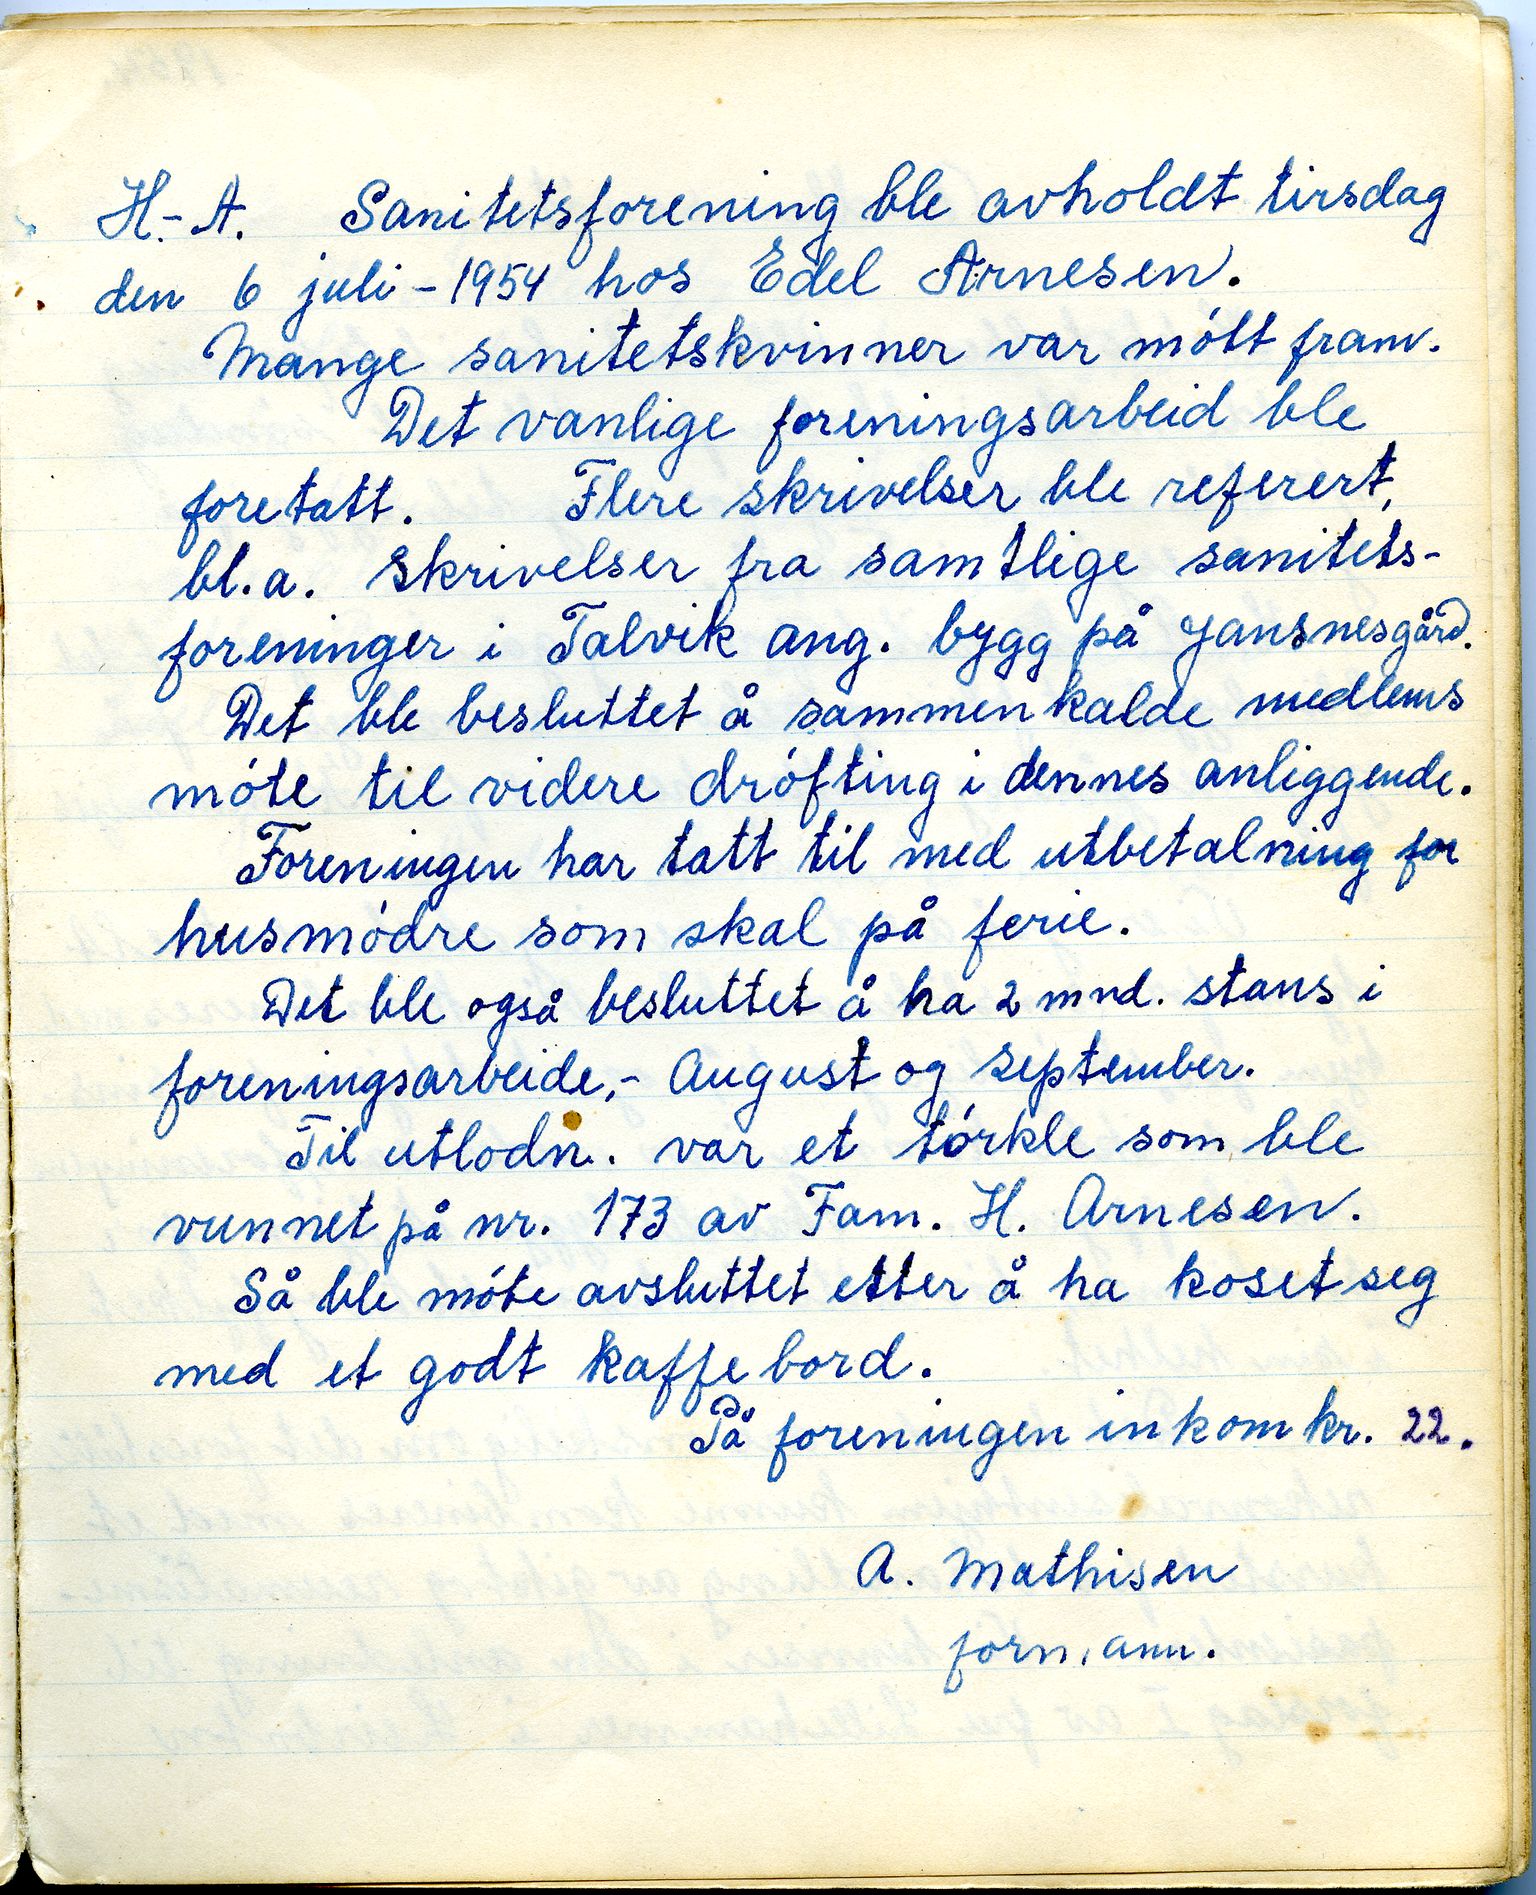 H.-A. Sanitetsforening ble avholdt tirsdag
den 6 juli - 1954 hos Edel Arnesen.
Mange sanitetskvinner var mótt fram.
Det vanlige foreningsarbeid ble
foretatt. Flere skrivelser ble referert,
bl.a. skrivelser fra samtlige sanitets-
foreninger i Talvik ang. bygg på Jansnesgård.
Det ble besluttet å sammenkalde medlems
móte til videre drófting i dennes anliggende.
Foreningen har tatt til med utbetalning for
husmódre som skal på ferie.
Det ble også besluttet å ha 2 mnd. stans i
foreningsarbeide,- August og september.
Til utlodn. var et tórkle som ble
vunnet på nr. 173 av Fam. H. Arnesen.
Så ble móte avsluttet etter å ha koset seg
med et godt kaffebord.
På foreningen inkom kr. 22.
A. Mathisen
formann.